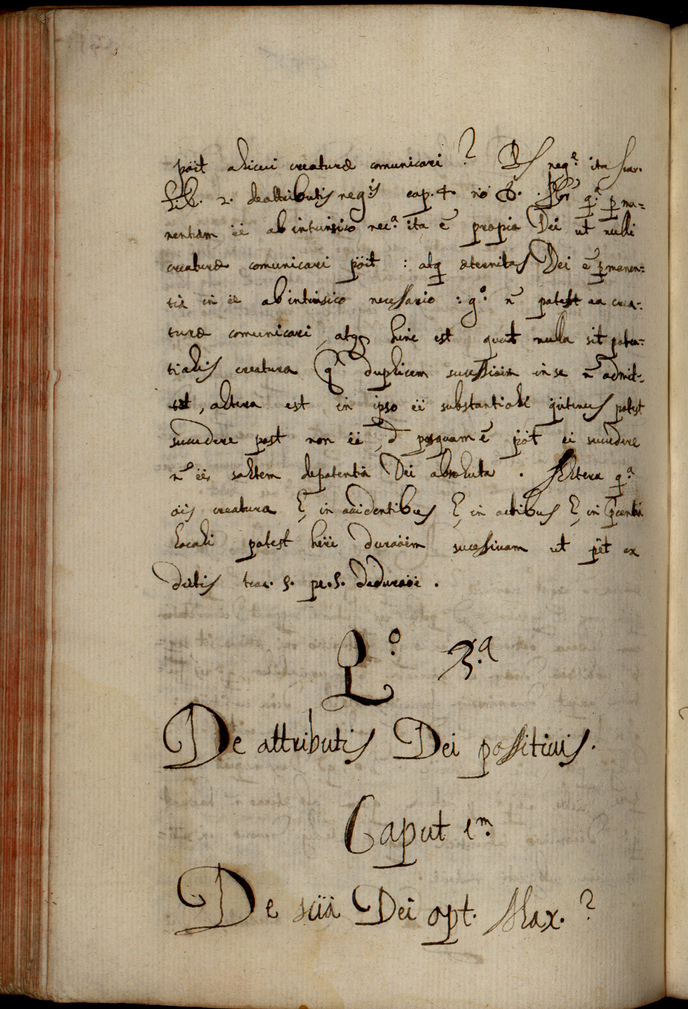 poit alicui creaturæ comunicari? Rs neg.e ita Suar.
lib. 2. de attributis neg.is cap. 4 nō 6. q.a perma-
nentiam eē ab intrinsico nec.a ita ē propia Dei ut nulli
creaturæ comunicari poit: atq æternitas Dei ē permanen-
tia in eē ab intrinsico necessario: g.o n̄ potest ea crea-
turæ comunicari, atq hinc est quod nulla sit paten-
tialis creatura q.a duplicem successioīm in se n̄ admit-
tat, altera est in ipso eē substantiale quatenus potest
succedere post non eē, posquam ē poit ei succedere
n.o eē saltem depotentia Dei absoluta. Altera q.a
oīs creatura in accidentibus in actibus in
locali potest herē duraōēm sucessivam ut pet ex
dictis trac. 5. pe. 5. de duraōē.
Q.o 3.a
De attributis Dei possitiuis.
Caput 1.m
De sciā Dei opt. Max.?